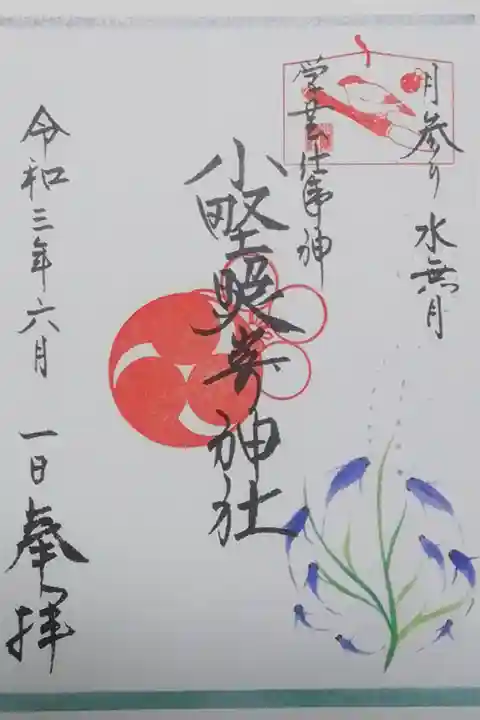 月参り 水無月
学芸仕事神
小野照英神社
令和三年六月 一日 奉拝